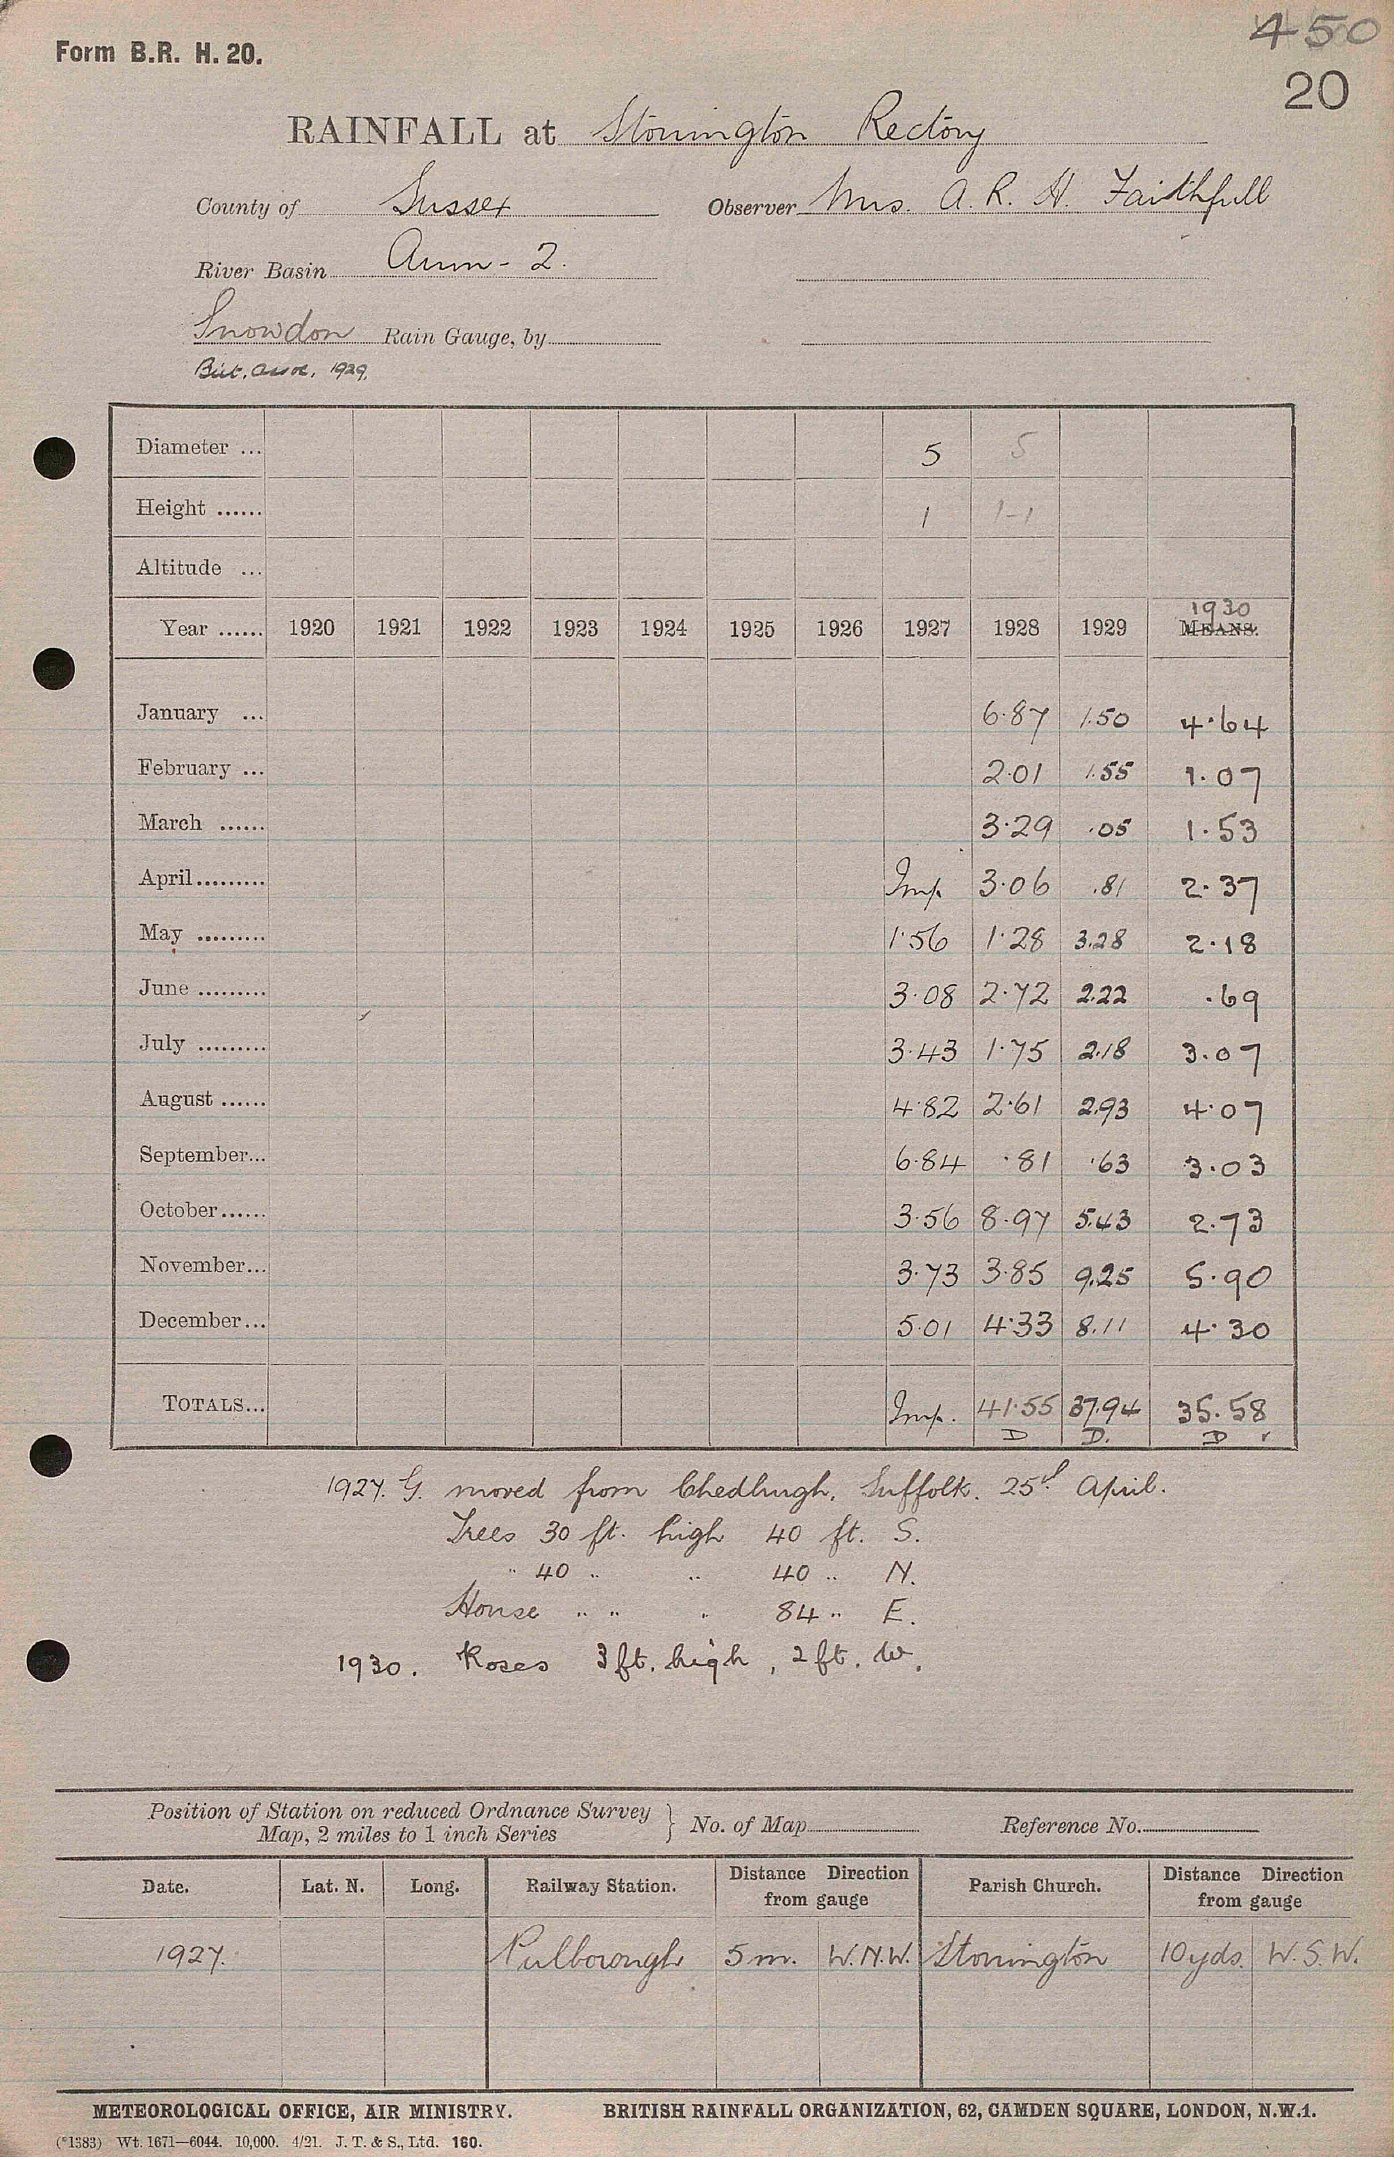 450
Form B.R. H. 20.
20
RAINFALL at Storrington Rectory
County of Sussex Observer Mrs. A. R. H. Faithfull
River Basin Arun - 2.
Snowdon Rain Gauge, by
Brit. Assoc. 1929.
Diameter ... 5 5
Height ...... 1 1-1
Altitude ...
1930
Year ...... 1920 1921 1922 1923 1924 1925 1926 1927 1928 1929 MEANS.
January ... 6.87 1.50 4.64
February ... 2.01 1.55 1.07
March ...... 3.29 .05 1.53
April......... Imp. 3.06 .81 2.37
May ......... 1.56 1.28 3.28 2.18
June ......... 3.08 2.72 2.22 .69
July ......... 3.43 1.75 2.18 3.07
August ...... 4.82 2.61 2.93 4.07
September... 6.84 .81 .63 3.03
October...... 3.56 8.97 5.43 2.73
November... 3.73 3.85 9.25 5.90
December... 5.01 4.33 8.11 4.30
TOTALS... Imp. 41.55 37.94 35.58
D D. D
1927. G. moved from Chedburgh, Suffolk. 25th April.
Trees 30 ft. high 40 ft. S.
" 40 " " 40 " N.
House " " " 84 " E.
1930. Roses 3 ft. high, 2 ft. W.
Position of Station on reduced Ordnance Survey
Map, 2 miles to 1 inch Series } No. of Map Reference No.
Date. Lat. N. Long. Railway Station. Distance Direction from gauge Parish Church. Distance Direction from gauge
1927. Pulborough 5 m. W.N.W. Storrington 10 yds. W.S.W.
METEOROLOGICAL OFFICE, AIR MINISTRY. BRITISH RAINFALL ORGANIZATION, 62, CAMDEN SQUARE, LONDON, N.W.1.
(*1383) Wt. 1671—6044. 10,000. 4/21. J. T. & S., Ltd. 160.